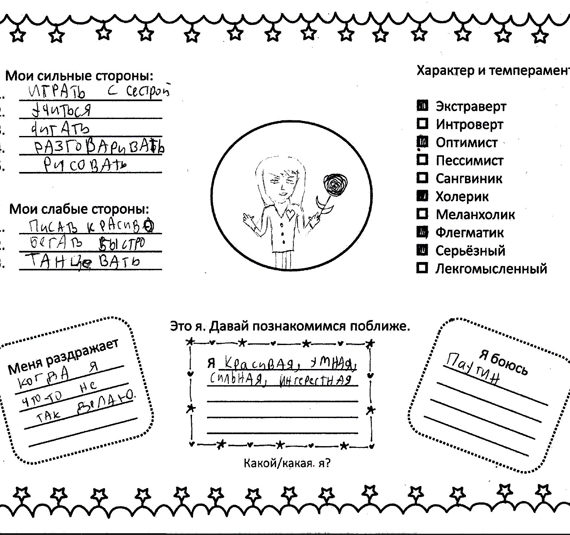 Мои сильные стороны:
ИГРАТЬ С сестрой
учиться
читАТЬ
РАЗГОВАРИВАТЬ
РИСОВАТЬ
Мои слабые стороны:
1. ПИСАТЬ КРАСИВО
2. БЕГАТЬ БЫСТРО
3. ТАНЦеВАТЬ
Характер и темперамент
Экстраверт
Интроверт
Оптимист
Пессимист
Сангвиник
Холерик
Меланхолик
Флегматик
Серьёзный
Легкомысленный
Это я. Давай познакомимся поближе.
Меня раздражает
КОГДА Я
ЧТО-ТО НЕ
ТАК ДЕЛАЮ.
Я КрасиВАЯ, УМНАЯ,
СИЛЬНАЯ, ИНтерестНАЯ
Какой/какая. я?
Я боюсь
ПАУТИН